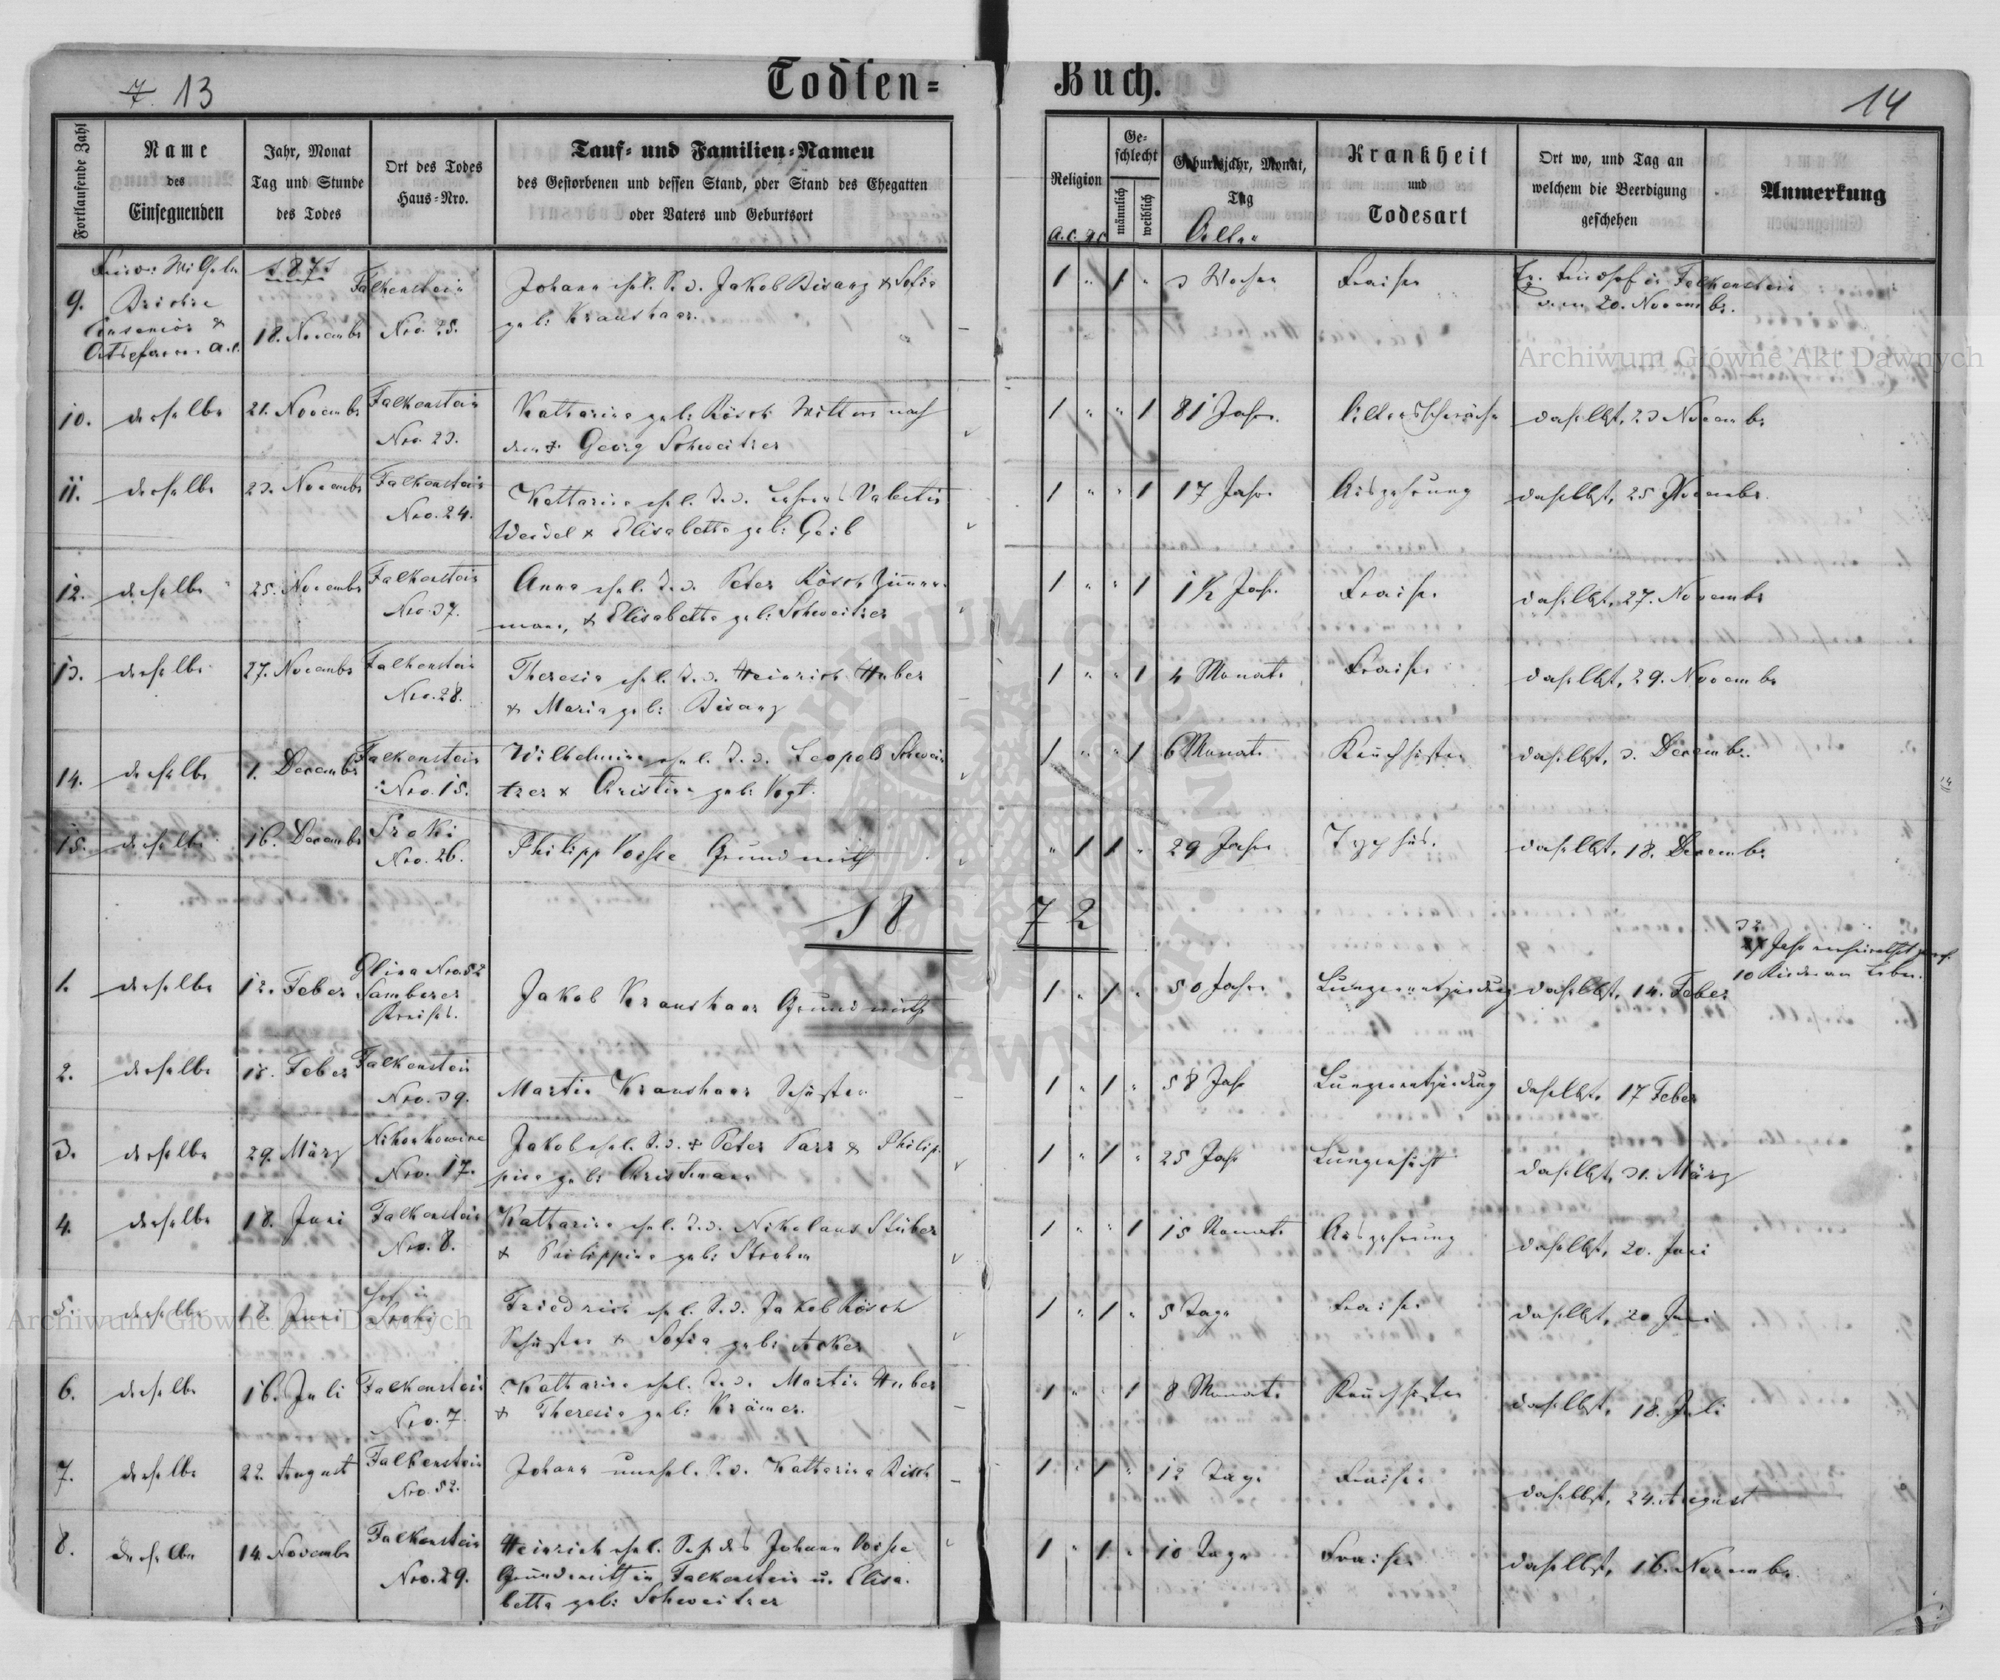 7 13
Todten-
Buch.
14
Fortlaufende Zahl
Name
des
Einsegnenden
Jahr, Monat
Tag und Stunde
des Todes
Ort des Todes
Haus-Nro.
Tauf- und Familien-Namen
des Gestorbenen und dessen Stand, oder Stand des Ehegatten
oder Vaters und Geburtsort
Religion
A.C. H.C
Ge-
schlecht
männlich
weiblich
Geburtsjahr, Monat,
Tag
Alter
Krankheit
und
Todesart
Ort wo, und Tag an
welchem die Beerdigung
geschehen
Anmerkung
9.
1871
18. Novembr
Falkenstein
Nro. 25.
Johann ehel. S. d. Jakob Bisanz & Sofia
geb: Kraushaar.
1 " 1 " 3 Wochen Fraisen
Friedhof in Falkenstein
den 20. Novembr.
10. derselbe 21. Novembr Falkenstein
Nro. 23.
Katharina geb: Rösch Wittwe nach
dem + Georg Schweitzer
1 " " 1 81 Jahre. Altersschwäche daselbst, 23 Novembr
11. derselbe 23. Novembr Falkenstein
Nro. 24.
Katharina ehel. T. d. Lehrers Valentin
Weidel & Elisabetha geb: Geib
1 " " 1 17 Jahre Auszehrung daselbst, 25 Novembr.
12. derselbe 25. Novembr Falkenstein
Nro. 37.
Anna ehel. T. d. Peter Rösch Zimmer-
mann, & Elisabetha geb: Schweitzer
1 " " 1 1½ Jahr. Fraisen daselbst, 27. Novembr
13. derselbe 27. Novembr Falkenstein
Nro. 28.
Theresia ehel. T. d. Heinrich Huber
& Maria geb: Bisanz
1 " " 1 4 Monate Fraisen daselbst, 29. Novembr
14. derselbe 1. Decembr Falkenstein
Nro. 15.
Wilhelmine ehel. T. d. Leopold Schwei-
tzer & Christine geb: Vogt.
1 " " 1 6 Monate Keuchhusten daselbst, 3. Decembr.
15. derselbe 16. Decembr
Nro. 26.
Philipp Grundwirth
" 1 1 " 29 Jahre Typhus. daselbst, 18. Decembr
1872
1. derselbe 12. Feber
Samborer
Kreises.
Jakob Kraushaar Grundwirth
1 " 1 " 50 Jahre Lungenentzündung daselbst, 14. Feber
32
10 Kinder am Leben.
2. derselbe 15. Feber Falkenstein
Nro. 39.
Martin Kraushaar Schuster
1 " 1 " 58 Jahr Lungenentzündung daselbst, 17 Feber
3. derselbe 29. März
Nro. 17.
Jakob ehel. S. d. + Peter Parr & Philip-
pine geb: Christmann
1 " 1 " 25 Jahr Lungensucht daselbst, 31. März
4. derselbe 18. Juni Falkenstein
Nro. 8.
Katharina ehel. T. d. Nikolaus Stuber
& Philippine geb: Strohm
1 " " 1 15 Monate Auszehrung daselbst, 20. Juni
5. derselbe 18. Juni
Friedrich ehel. S. d. Jakob Rösch
Schuster & Sofia geb:
1 " 1 " 5 Tage Fraisen daselbst, 20 Juni
6. derselbe 16. Juli Falkenstein
Nro. 7.
Katharina ehel. T. d. Martin Huber
& Theresia geb: Krämer.
1 " " 1 8 Monate Keuchhusten daselbst, 18. Juli
7. derselbe 22. August Falkenstein
Nro. 52.
Johann unehel. S. d. Katharina
1 " 1 " 12 Tage Fraisen daselbst, 24. August
8. derselbe 14. Novembr Falkenstein
Nro. 29.
Heinrich ehel. S. des Johann
Grundwirth in Falkenstein u. Elisa-
betha geb: Schweitzer
1 " 1 " 10 Tage Fraisen daselbst, 16. Novembr.
Archiwum Główne Akt Dawnych
Archiwum Główne Akt Dawnych
ARCHIWUM GŁÓWNE AKT DAWNYCH